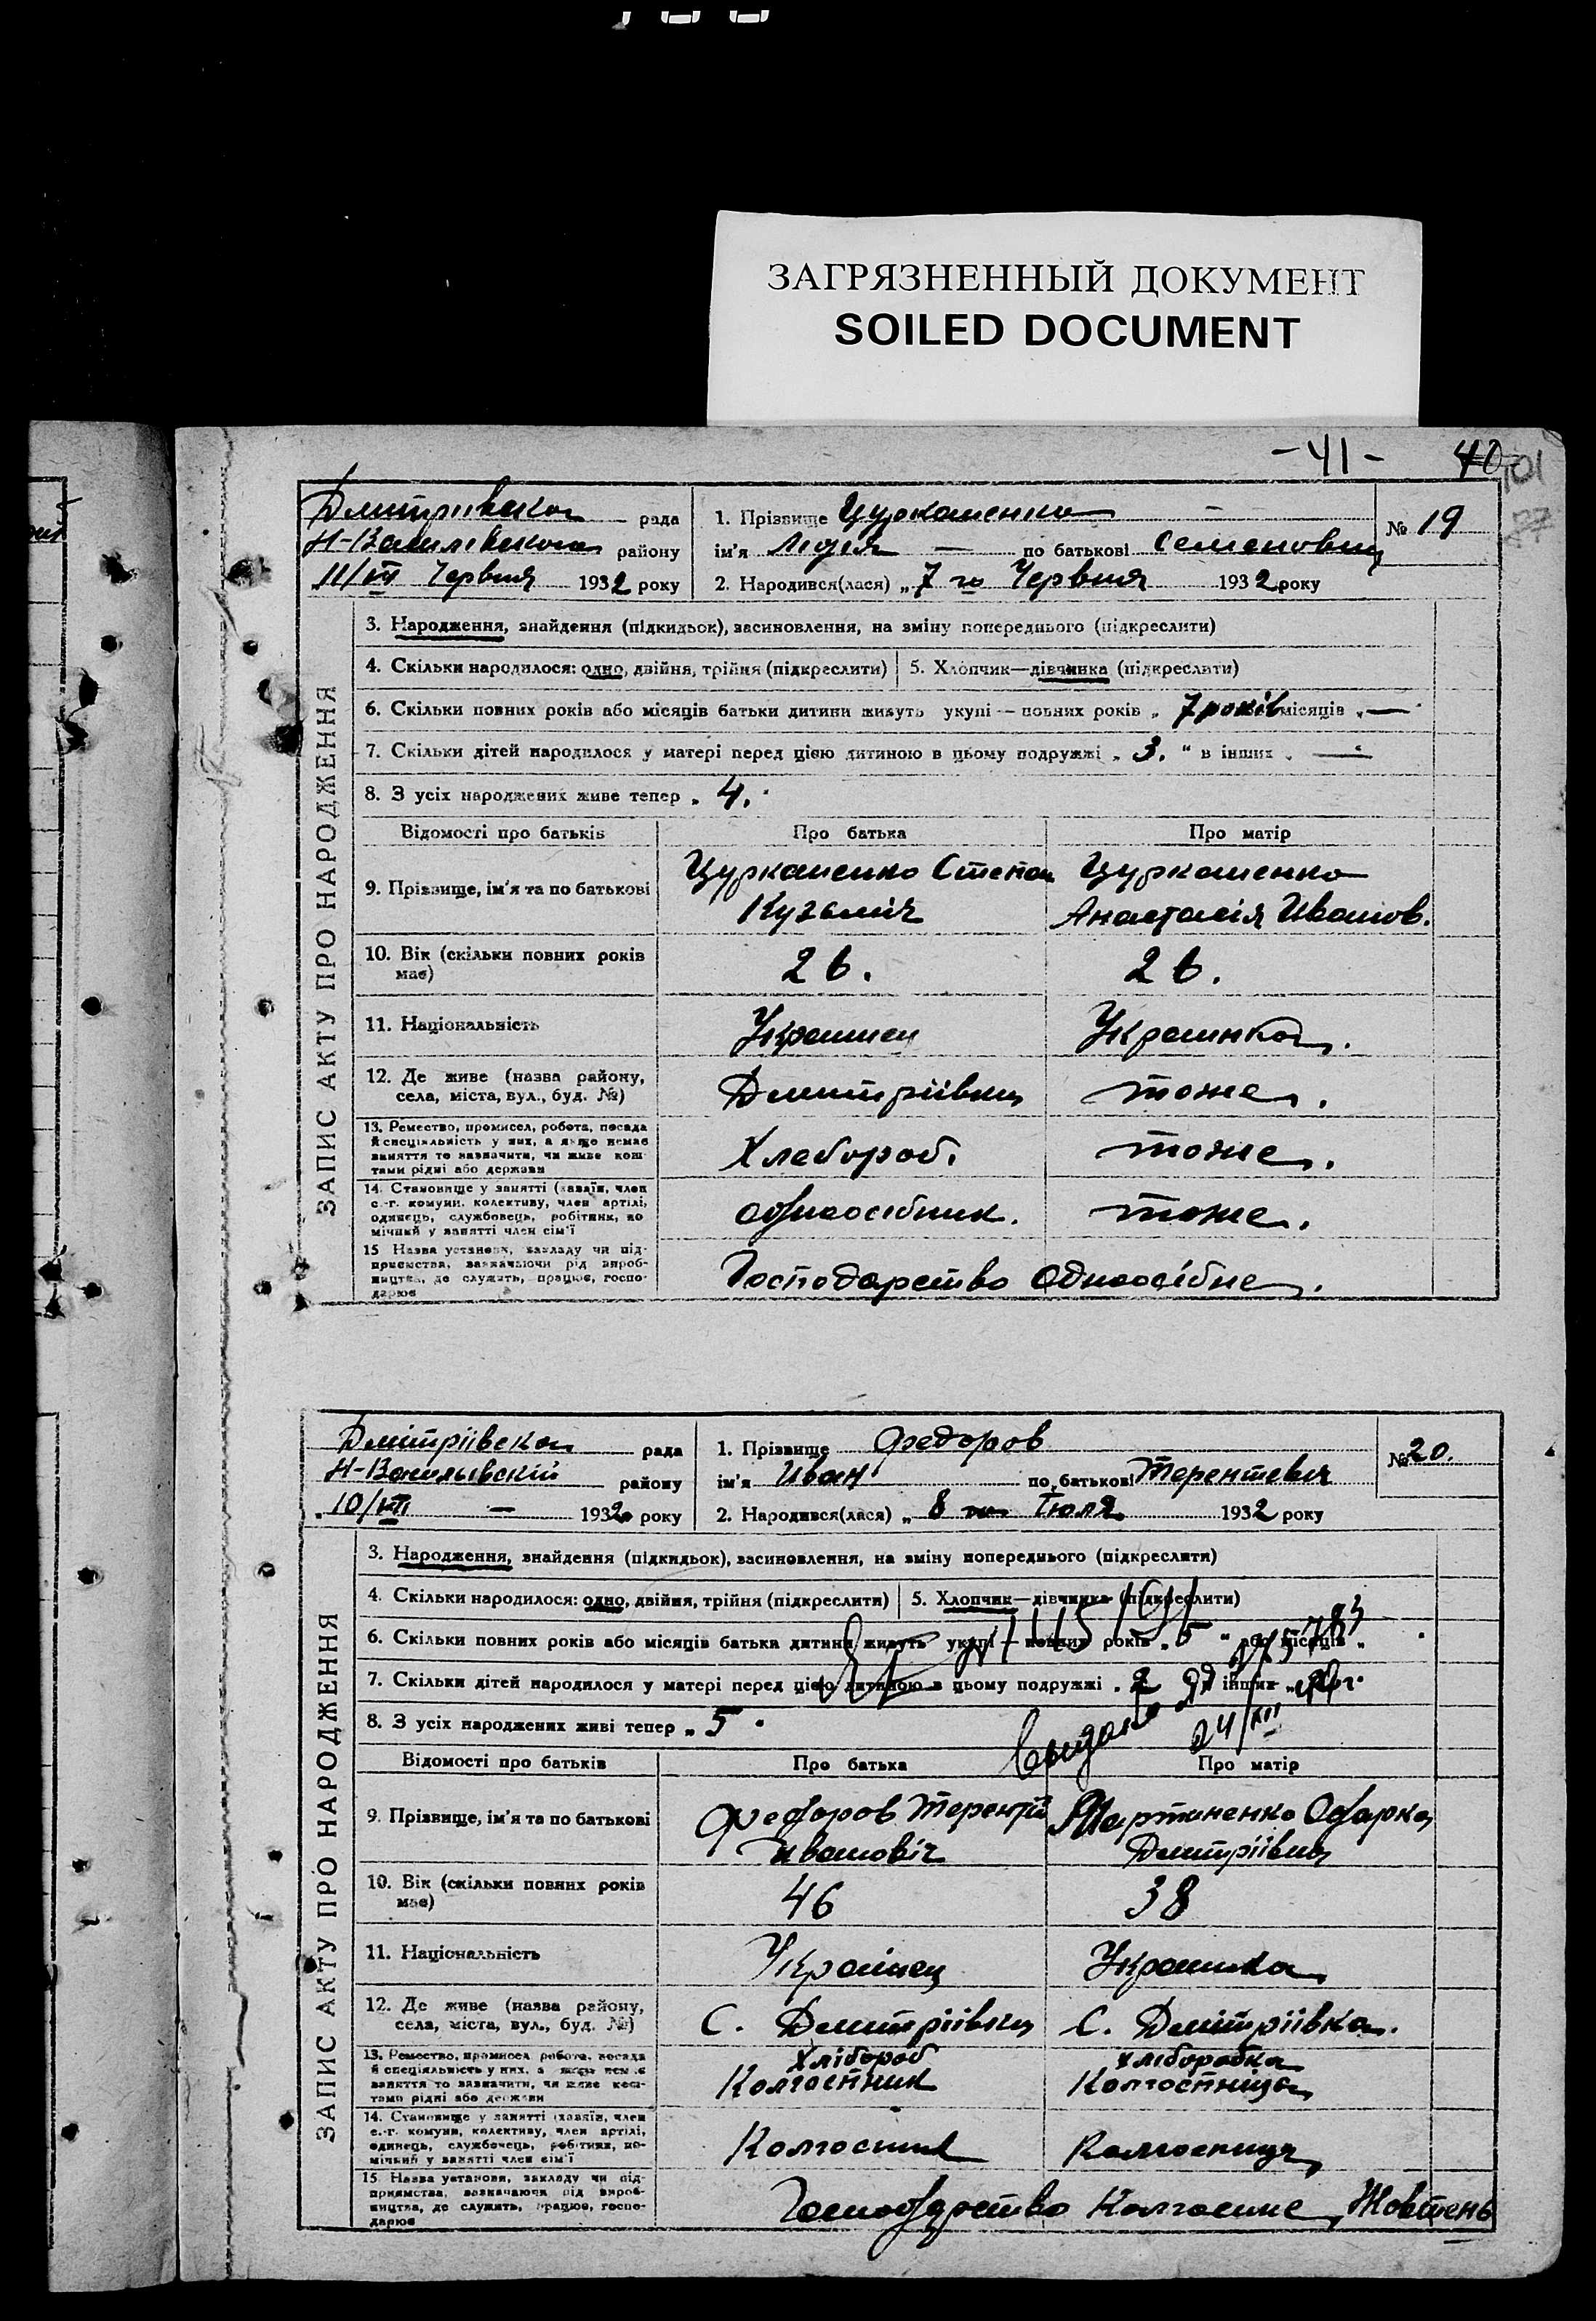 ЗАГРЯЗНЕННЫЙ ДОКУМЕНТ
SOILED DOCUMENT
-41- 40 101
ЗАПИС АКТУ ПРО НАРОДЖЕННЯ
Дмитрівська рада
Н-Василівського району
11/VII Червня 1932 року
1. Прізвище Цуркаменко
№ 19
ім'я Лідія — по батькові Семеновна
2. Народився(лася) „7 го Червня 1932 року
3. Народження, знайдення (підкидьок), засиновлення, на зміну попереднього (підкреслити)
4. Скільки народилося: одно, двійня, трійня (підкреслити) 5. Хлопчик—дівчинка (підкреслити)
6. Скільки повних років або місяців батьки дитини живуть укупі — повних років „ 7 років місяців „ —
7. Скільки дітей народилося у матері перед цією дитиною в цьому подружжі „ 3. “ в інших „ —
8. З усіх народжених живе тепер „ 4.
Відомості про батьків Про батька Про матір
9. Прізвище, ім'я та по батькові
Цуркаменко Степан
Кузьміч
Цуркаменко
Анастасія Иванов.
10. Вік (скільки повних років
має)
26. 26.
11. Національність Украинец Украинка.
12. Де живе (назва району,
села, міста, вул., буд. №)
Дмитріівка тоже.
13. Ремество, промисел, робота, посада
й спеціяльність у них, а якщо немає
заняття то зазначити, чи живе кош-
тами рідні або держави
Хлебороб. тоже.
14. Становище у занятті (хазяїн, член
с.-г. комуни, колективу, член артілі,
одинець, службовець, робітник, по
мічний у занятті член сім'ї
одноосібник. тоже.
15 Назва установи, закладу чи під-
приємства, зазначаючи рід вироб-
ництва, де служить, працює, госпо-
дарює
Господарство Одноосібне.
ЗАПИС АКТУ ПРО НАРОДЖЕННЯ
Дмітріівска рада
Н-Васильівскій району
10/VII — 1932 року
1. Прізвище Федоров
№ 20.
ім'я Иван по батькові Терентевич
2. Народився(лася) „ 8 го Іюля 1932 року
3. Народження, знайдення (підкидьок), засиновлення, на зміну попереднього (підкреслити)
4. Скільки народилося: одно, двійня, трійня (підкреслити) 5. Хлопчик—дівчинка (підкреслити)
6. Скільки повних років або місяців батька дитини живуть укупі — повних років „ 5 “ або місяців „
7. Скільки дітей народилося у матері перед цією дитиною в цьому подружжі „ 2 інших „
8. З усіх народжених живі тепер „ 5
24/XII
Відомості про батьків Про батька Про матір
9. Прізвище, ім'я та по батькові
Федоров Терентій
Ивановіч
Мартиненко Одарка
Дмитріівна
10. Вік (скільки повних років
має)
46 38
11. Національність Украінец Украинка
12. Де живе (назва району,
села, міста, вул., буд. №)
С. Дмитріівка С. Дмітріівка.
13. Ремество, промисел робота, посада
й спеціяльність у них, а якщо немає
заняття то зазначити, чи живе кош-
тами рідні або держави
Хлібороб
Колгостник
Хліборобка
Колгостніца
14. Становище у занятті (хазяїн, член
с.-г. комуни, колективу, член артілі,
одинець, службовець, робітник, по-
мічний у занятті член сім'ї
Колгосник Колгосниця
15. Назва установи, закладу чи під-
приємства, зазначаючи рід вироб-
ництва, де служить, працює, госпо-
дарює
Господарство Колгоспне, Жовтень